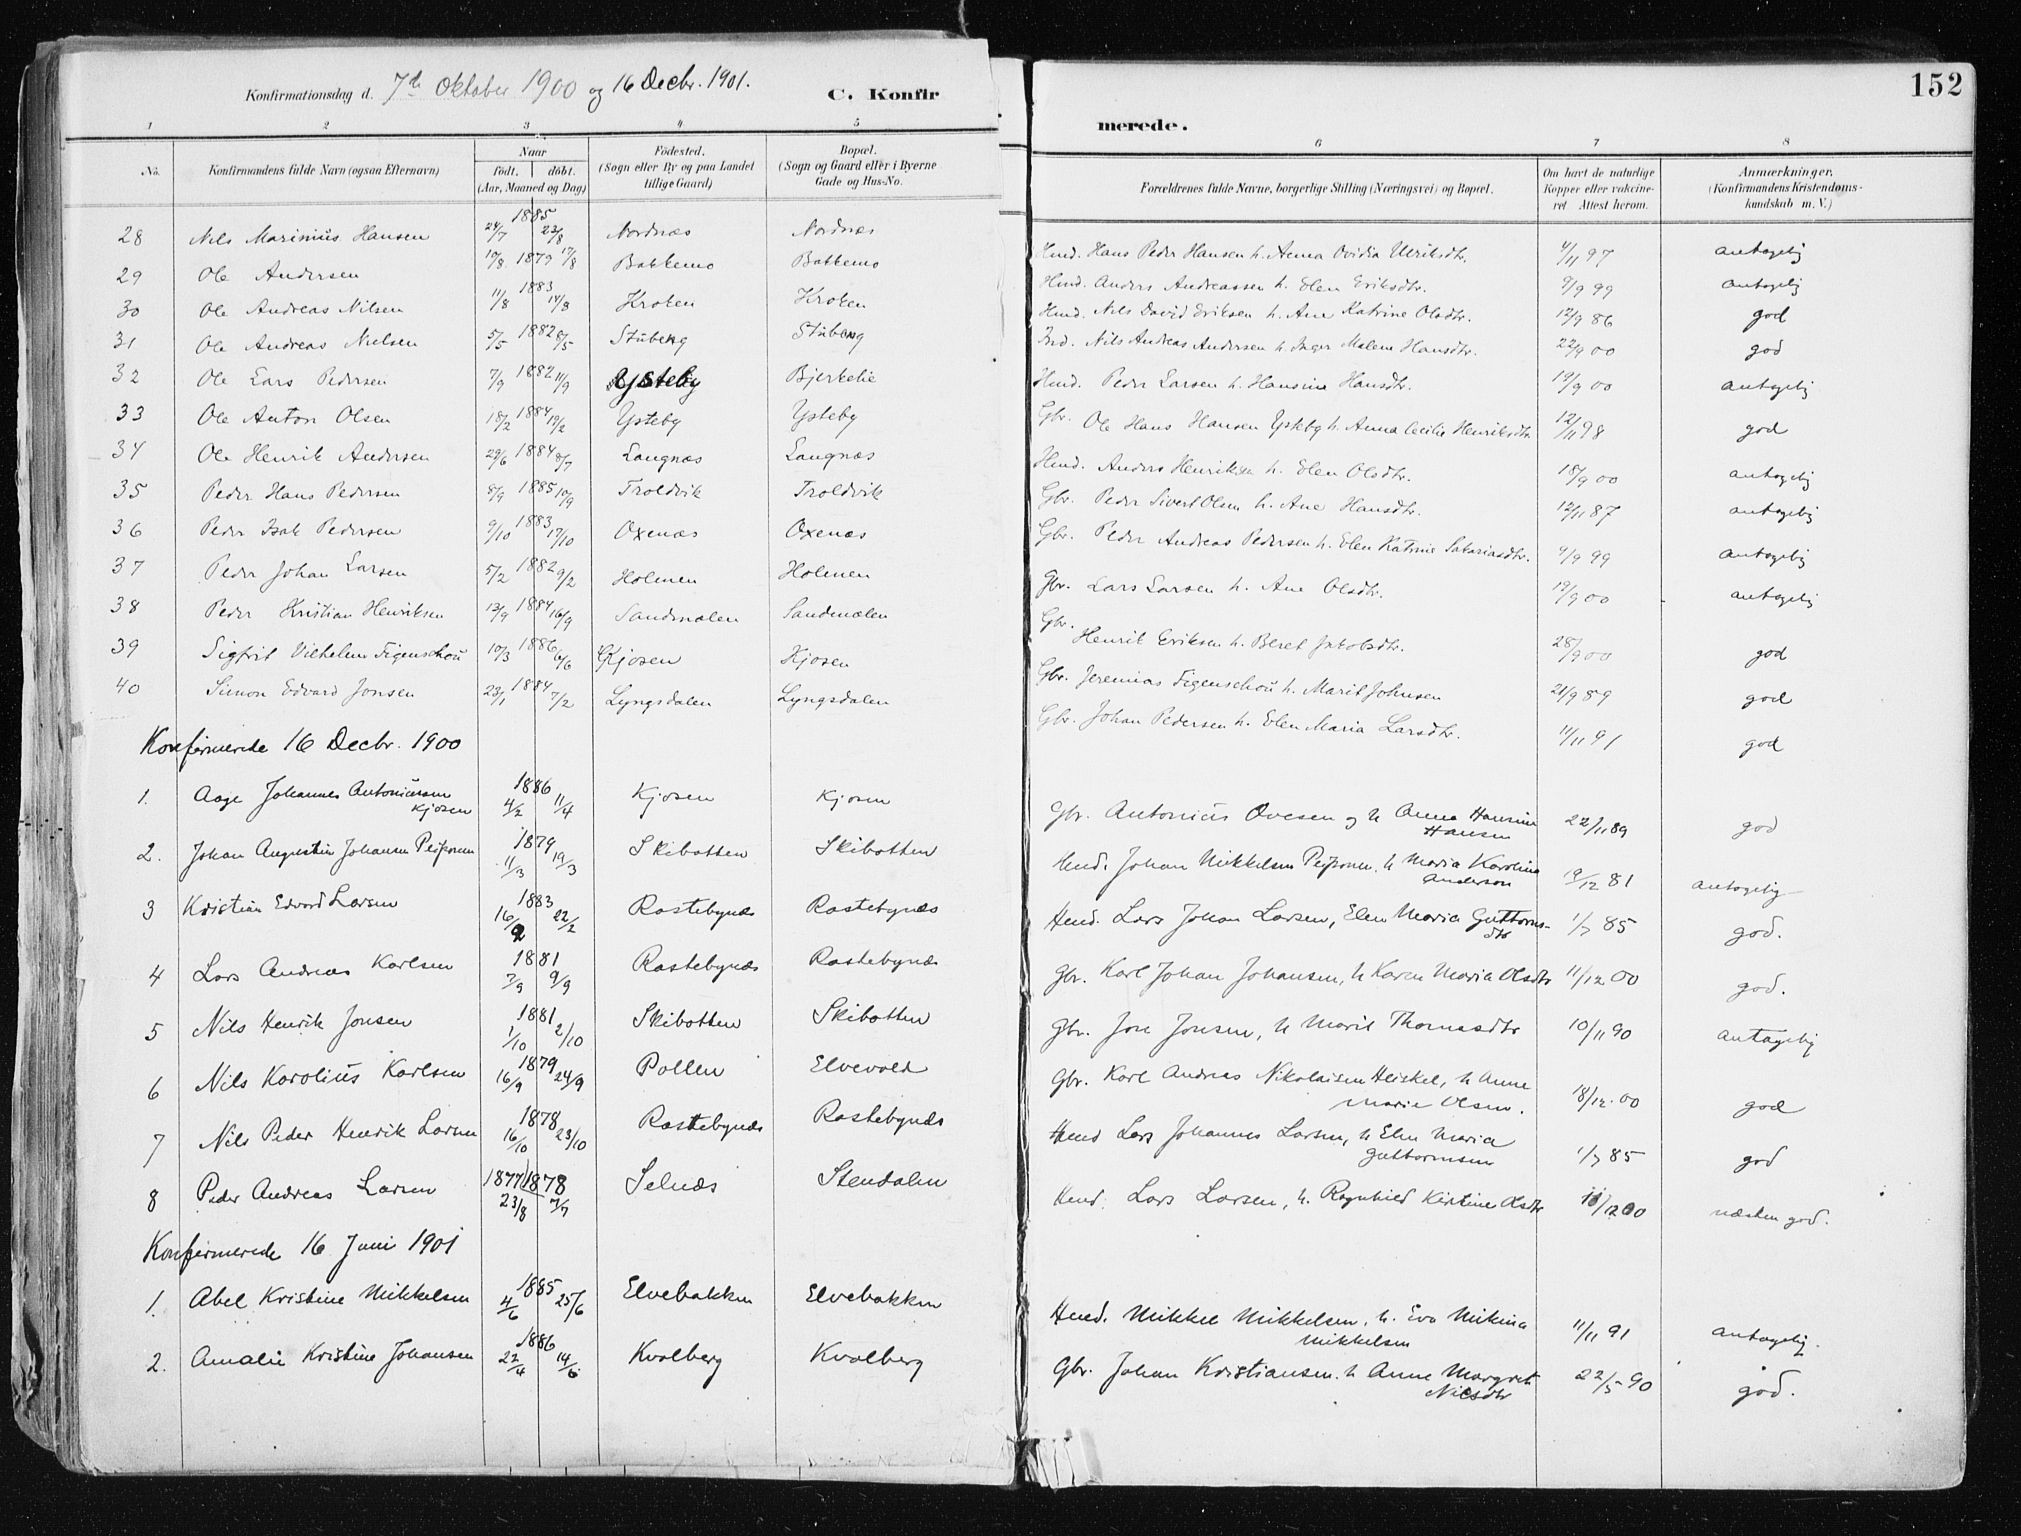 152
Konfirmationsdag d. 7de Oktober 1900 og 16 Decbr. 1901.
C. Konfirmerede.
1 2 3 4 5 6 7 8
No. Konfirmandens fulde Navn (ogsaa Efternavn) Naar født. døbt. (Aar, Maaned og Dag) Födested. (Sogn eller By og paa Landet tillige Gaard) Bopæl. (Sogn og Gaard eller i Byerne Gade og Hus-No. Forældrenes fulde Navne, borgerlige Stilling (Næringsvei) og Bopæl. Om havt de naturlige Kopper eller vakcineret Attest herom. Anmærkninger. (Konfirmandens Kristendomskundskab m. V.)
28 Nils Marinius Hansen 24/7 1885 23/8 Nordnæs Nordnæs Hmd. Hans Peder Hansen h. Anna Ovidia Ulriksdtr. 4/11 97 antagelig
29 Ole Andersen 10/8 1879 17/8 Bakkemo Bakkemo Hmd. Anders Andreassen h. Elen Eriksdtr. 9/9 99 antagelig
30 Ole Andreas Nilsen 11/8 1883 14/8 Kroken Kroken Hmd. Nils David Eriksen h. Ane Katrine Olsdtr. 12/9 86 god
31 Ole Andreas Nielsen 5/5 1882 8/5 Stubeng Stubeng Ind. Nils Andreas Andersen h. Inger Malene Hansdtr. 22/9 00 god
32 Ole Lars Pedersen 7/9 1882 11/9 Ysteby Bjerkelie Hmd. Peder Larsen h. Hansine Hansdtr. 19/9 00 antagelig
33 Ole Anton Olsen 18/2 1884 19/2 Ysteby Ysteby Gbr. Ole Hans Hansen Ysteby h. Anna Cecilie Henriksdtr 12/11 98 god
34 Ole Henrik Andersen 29/6 1884 8/7 Langnæs Langnæs Hmd. Anders Henriksen h. Elen Olsdtr. 18/9 00 antagelig
35 Peder Hans Pedersen 8/9 1885 10/9 Troldvik Troldvik Gbr. Peder Sivert Olsen h. Ane Hansdtr. 12/11 87 antagelig
36 Peder Isak Pedersen 9/10 1883 17/10 Oxenæs Oxenæs Gbr. Peder Andreas Pedersen h. Elen Katrine Sakariasdtr. 4/9 99 antagelig
37 Peder Johan Larsen 5/2 1882 9/2 Holmen Holmen Gbr. Lars Larsen h. Ane Olsdtr. 19/9 00 antagelig
38 Peder Kristian Henriksen 13/9 1884 16/9 Sandmælen Sandmælen Gbr. Henrik Eriksen h. Beret Jakobsdtr. 28/9 00 god
39 Sigfrit Vilhelm Figenschou 10/3 1886 6/6 Kjosen Kjosen Gbr. Jeremias Figenschou h. Marit Johnsen 21/9 89 god
40 Simon Edvard Jonsen 23/1 1884 7/2 Lyngsdalen Lyngsdalen Gbr. Johan Pedersen h. Elen Maria Larsdtr. 11/11 91 god
Konfirmerede 16 Decbr. 1900
1. Aage Johannes Antoniussen Kjosen 1886 4/2 11/4 Kjosen Kjosen Gbr. Antonius Ovesen og h Anna Hansine Hansen 22/11 89 god
2. Johan Augustin Johansen Peipponen 1879 11/3 19/3 Skibotten Skibotten Hmd. Johan Mikkelsen h Maria Karoline Anderson 19/12 81 antagelig
3 Kristian Edvard Larsen 1883 16/2 22/2 Rastebynæs Rastebynæs Hmd. Lars Johan Larsen, Elen Maria Guttormsdtr 1/7 85 god.
4 Lars Andreas Karlsen 1881 7/9 9/9 Rastebynæs Rastebynæs Gbr. Karl Johan Johansen, h Karen Maria Olsdtr 11/12 00 god.
5 Nils Henrik Jonsen 1881 1/10 2/10 Skibotten Skibotten Gbr. Jon Jonsen, h Marit Thomasdtr 10/11 90 antagelig
6 Nils Karolius Karlsen 1879 16/9 24/9 Pollen Elvevold Gbr. Karl Andreas Nikolaisen Heiskel, h Anne Marie Olsen. 18/12.00 god
7 Nils Peder Henrik Larsen 1878 16/10 23/10 Rastebynæs Rastebynæs Hmd Lars Johannes Larsen, h Elen Maria Guttormsen 1/7 85 god
8 Peder Andreas Larsen 1877 1878 23/8 7/7 Selnæs Stendalen Hmd. Lars Larsen, h. Ragnhild Kirstine Olsdtr 11/12 00 næsten god.
Konfirmerede 16 Juni 1901
1. Abel Kristine Mikkelsen 1885 4/6 25/6 Elvebakken Elvebakken Hmd. Mikkel Mikkelsen, h. Eva Mikkelsen 11/11 91 antagelig.
2. Amalie Kristine Johansen 1886 22/4 14/6 Kvalberg Kvalberg Gbr. Johan Kristiansen. h Anne Margret Nilsdtr 22/5 90 god.